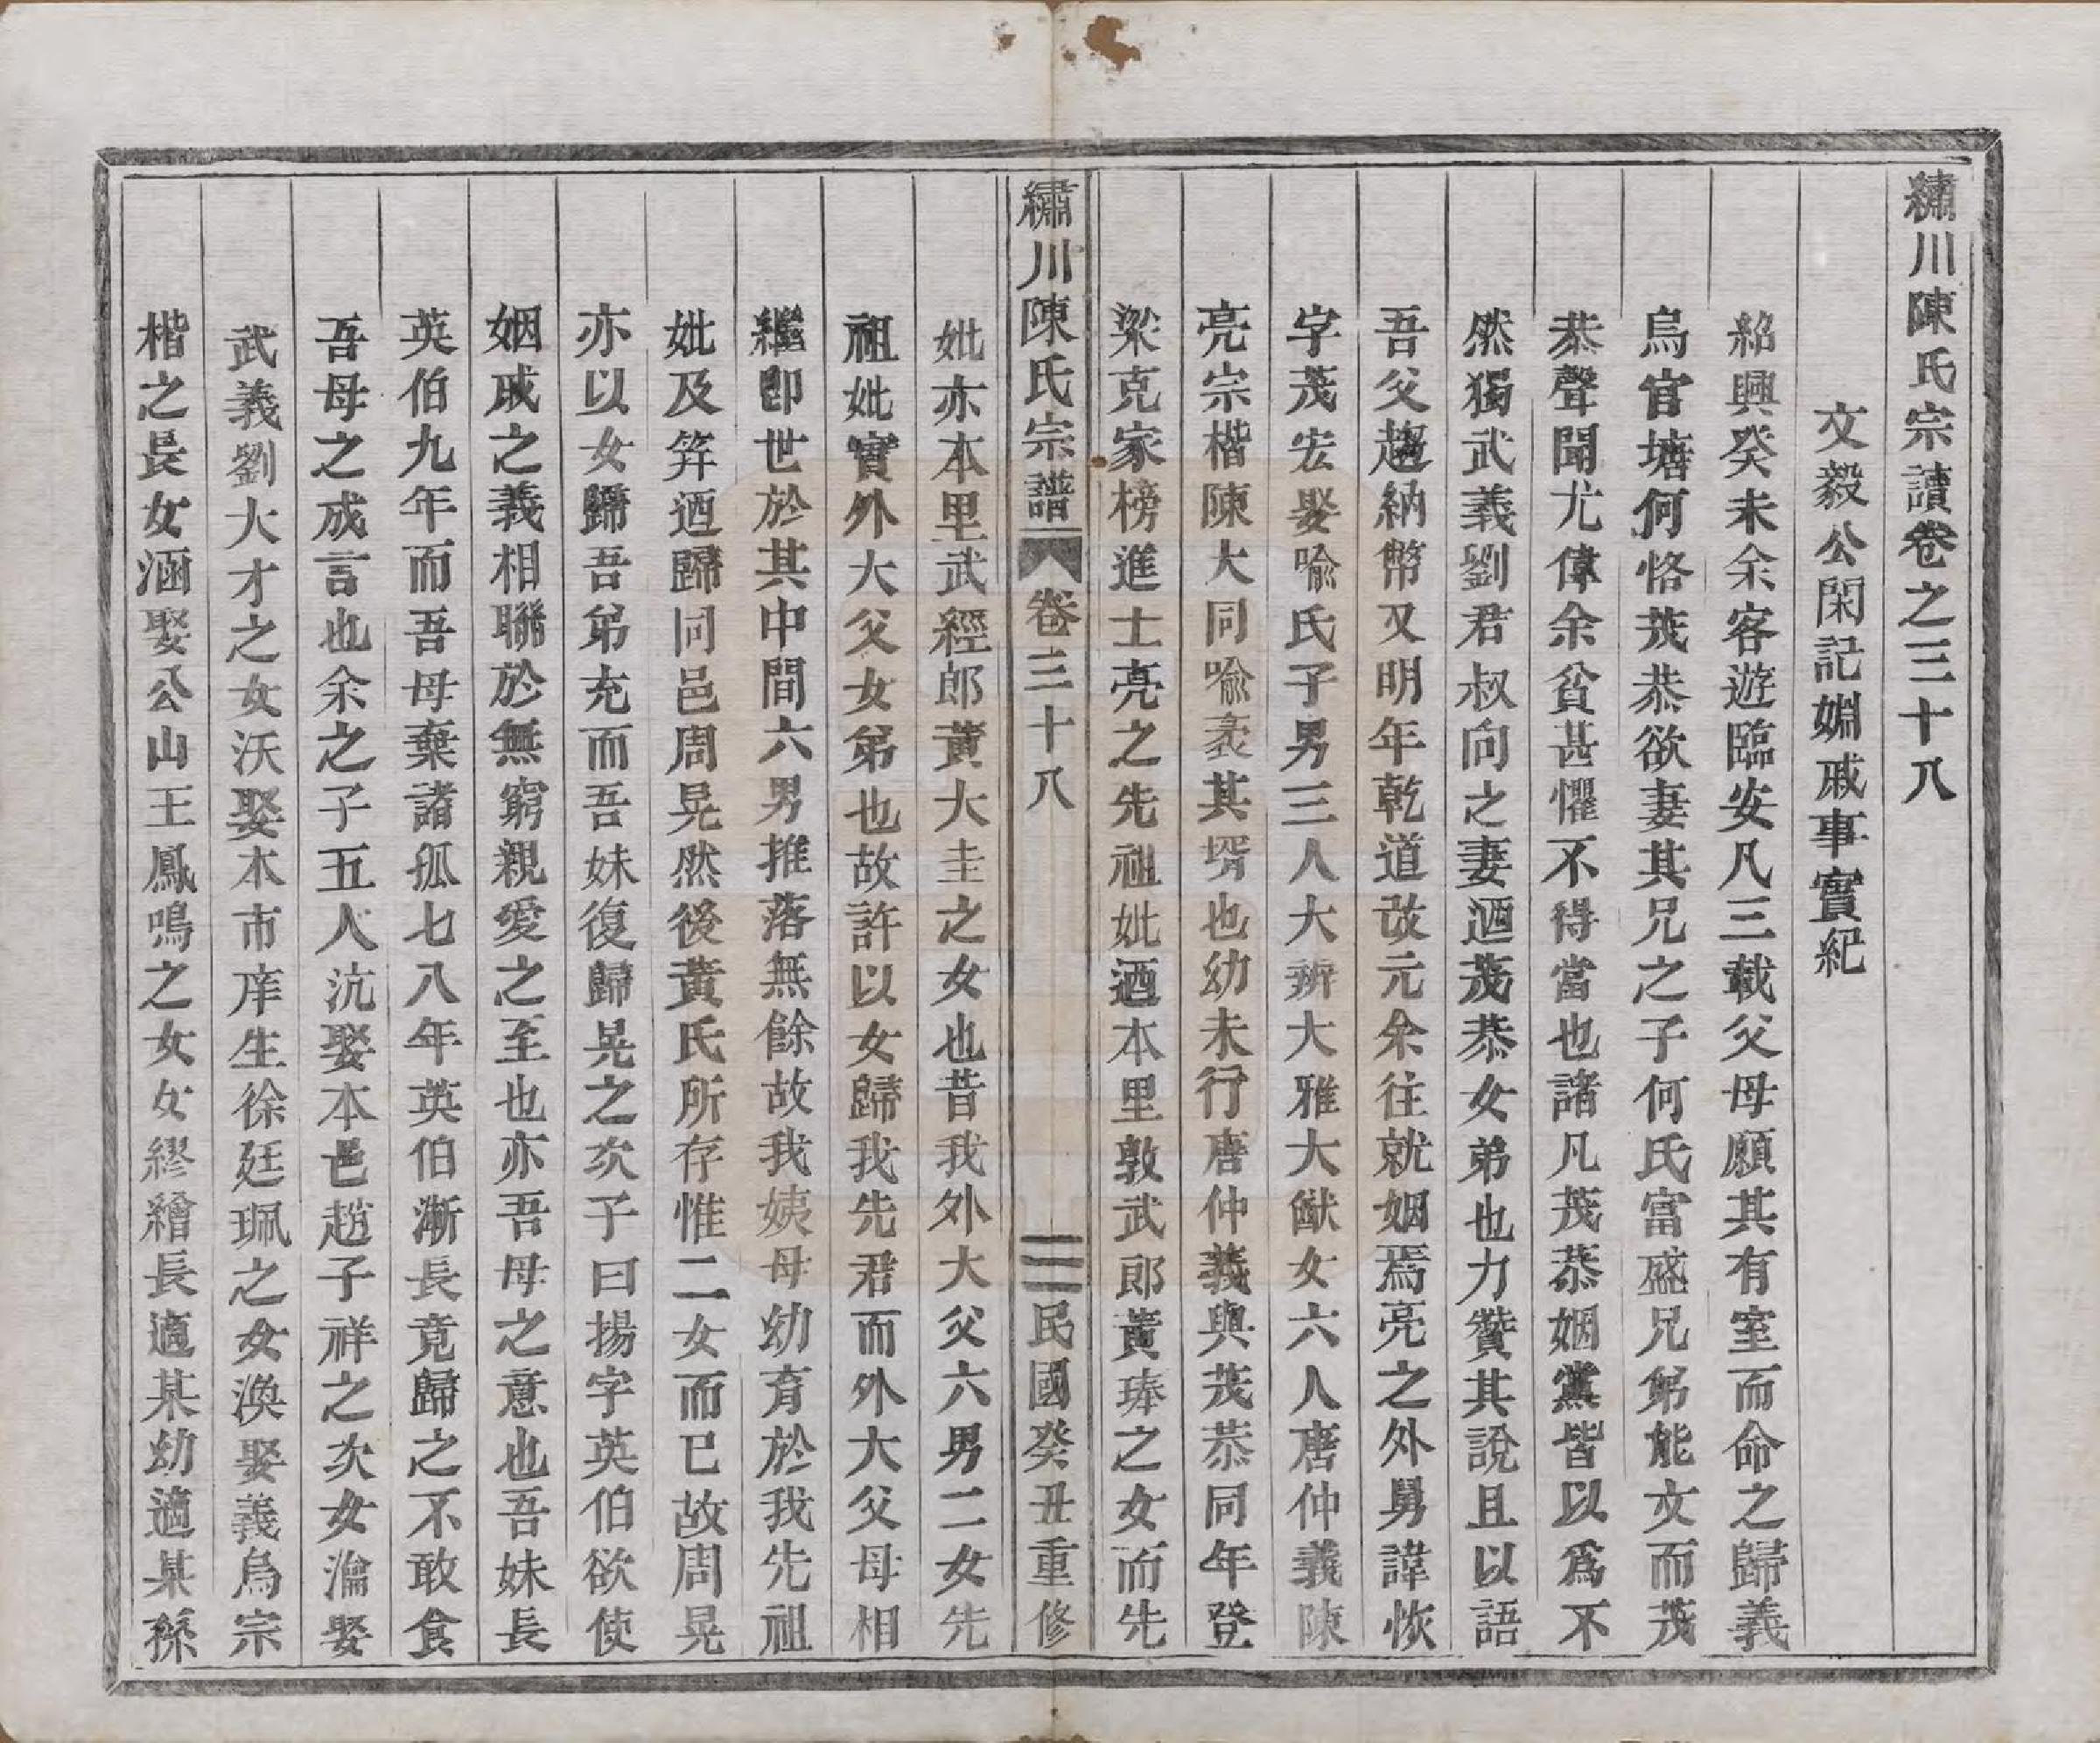 繡川陳氏宗譜卷之三十八
文毅公閑記婣戚事實紀
紹興癸未余客遊臨安凡三載父母願其有室而命之歸義
烏官塘何恪茂恭欲妻其兄之子何氏富盛兄弟能文而茂
恭聲聞尤偉余貧甚懼不得當也諸凡茂恭姻黨皆以爲不
然獨武義劉君叔向之妻迺茂恭女弟也力贊其說且以語
吾父趨納幣又明年乾道改元余往就姻焉亮之外舅諱恢
字茂宏娶喻氏子男三人大辨大雅大猷女六人唐仲義陳
亮宗楷陳大同喻袤其壻也幼未行唐仲義與茂恭同年登
梁克家榜進士亮之先祖妣迺本里敦武郎黃琫之女而先
繡川陳氏宗譜 卷三十八 三 民國癸丑重修
妣亦本里武經郎黃大圭之女也昔我外大父六男二女先
祖妣實外大父女弟也故許以女歸我先君而外大父母相
繼即世於其中間六男推落無餘故我姨母幼育於我先祖
妣及笄迺歸同邑周晃然後黃氏所存惟二女而已故周晃
亦以女歸吾弟充而吾妹復歸晃之次子曰揚字英伯欲使
姻戚之義相聯於無窮親愛之至也亦吾母之意也吾妹長
英伯九年而吾母棄諸孤七八年英伯漸長竟歸之不敢食
吾母之成言也余之子五人沆娶本邑趙子祥之次女瀹娶
武義劉大才之女沃娶木市庠生徐廷珮之女渙娶義烏宗
楷之長女涵娶公山王鳳鳴之女女繆繪長適某幼適某孫